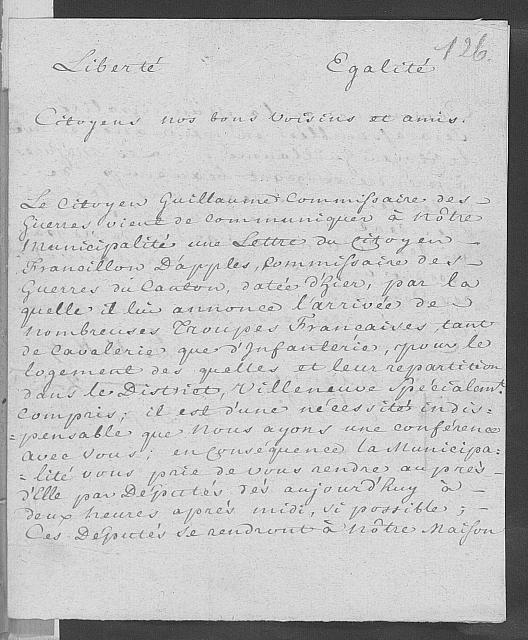 126.
Liberté Egalité
Citoyens nos bons voisins et amis.
Le Citoyen Guillaume Commissaire des
Guerres, vient de communiquer à Nôtre
Municipalité une Lettre du Citoyen
Francillon D'apples, Commissaire des
Guerres du Canton, datée d'hier, par la
quelle il lui annonce l'arrivée de
nombreuses Troupes Francaises, tant
de Cavalerie que d'Infanterie, pour le
logement des quelles et leur repartition
dans le District, Villeneuve specialemt.
Compris; il est d'une nécessité indis=
=pensable que Nous ayons une conférence
avec Vous; en conséquence la Municipa=
=lité vous prie de vous rendre au près
d'Elle par Députés dès aujourd'huy à
deux heures après midi, si possible; -
Ces Députés se rendront à Nôtre Maison